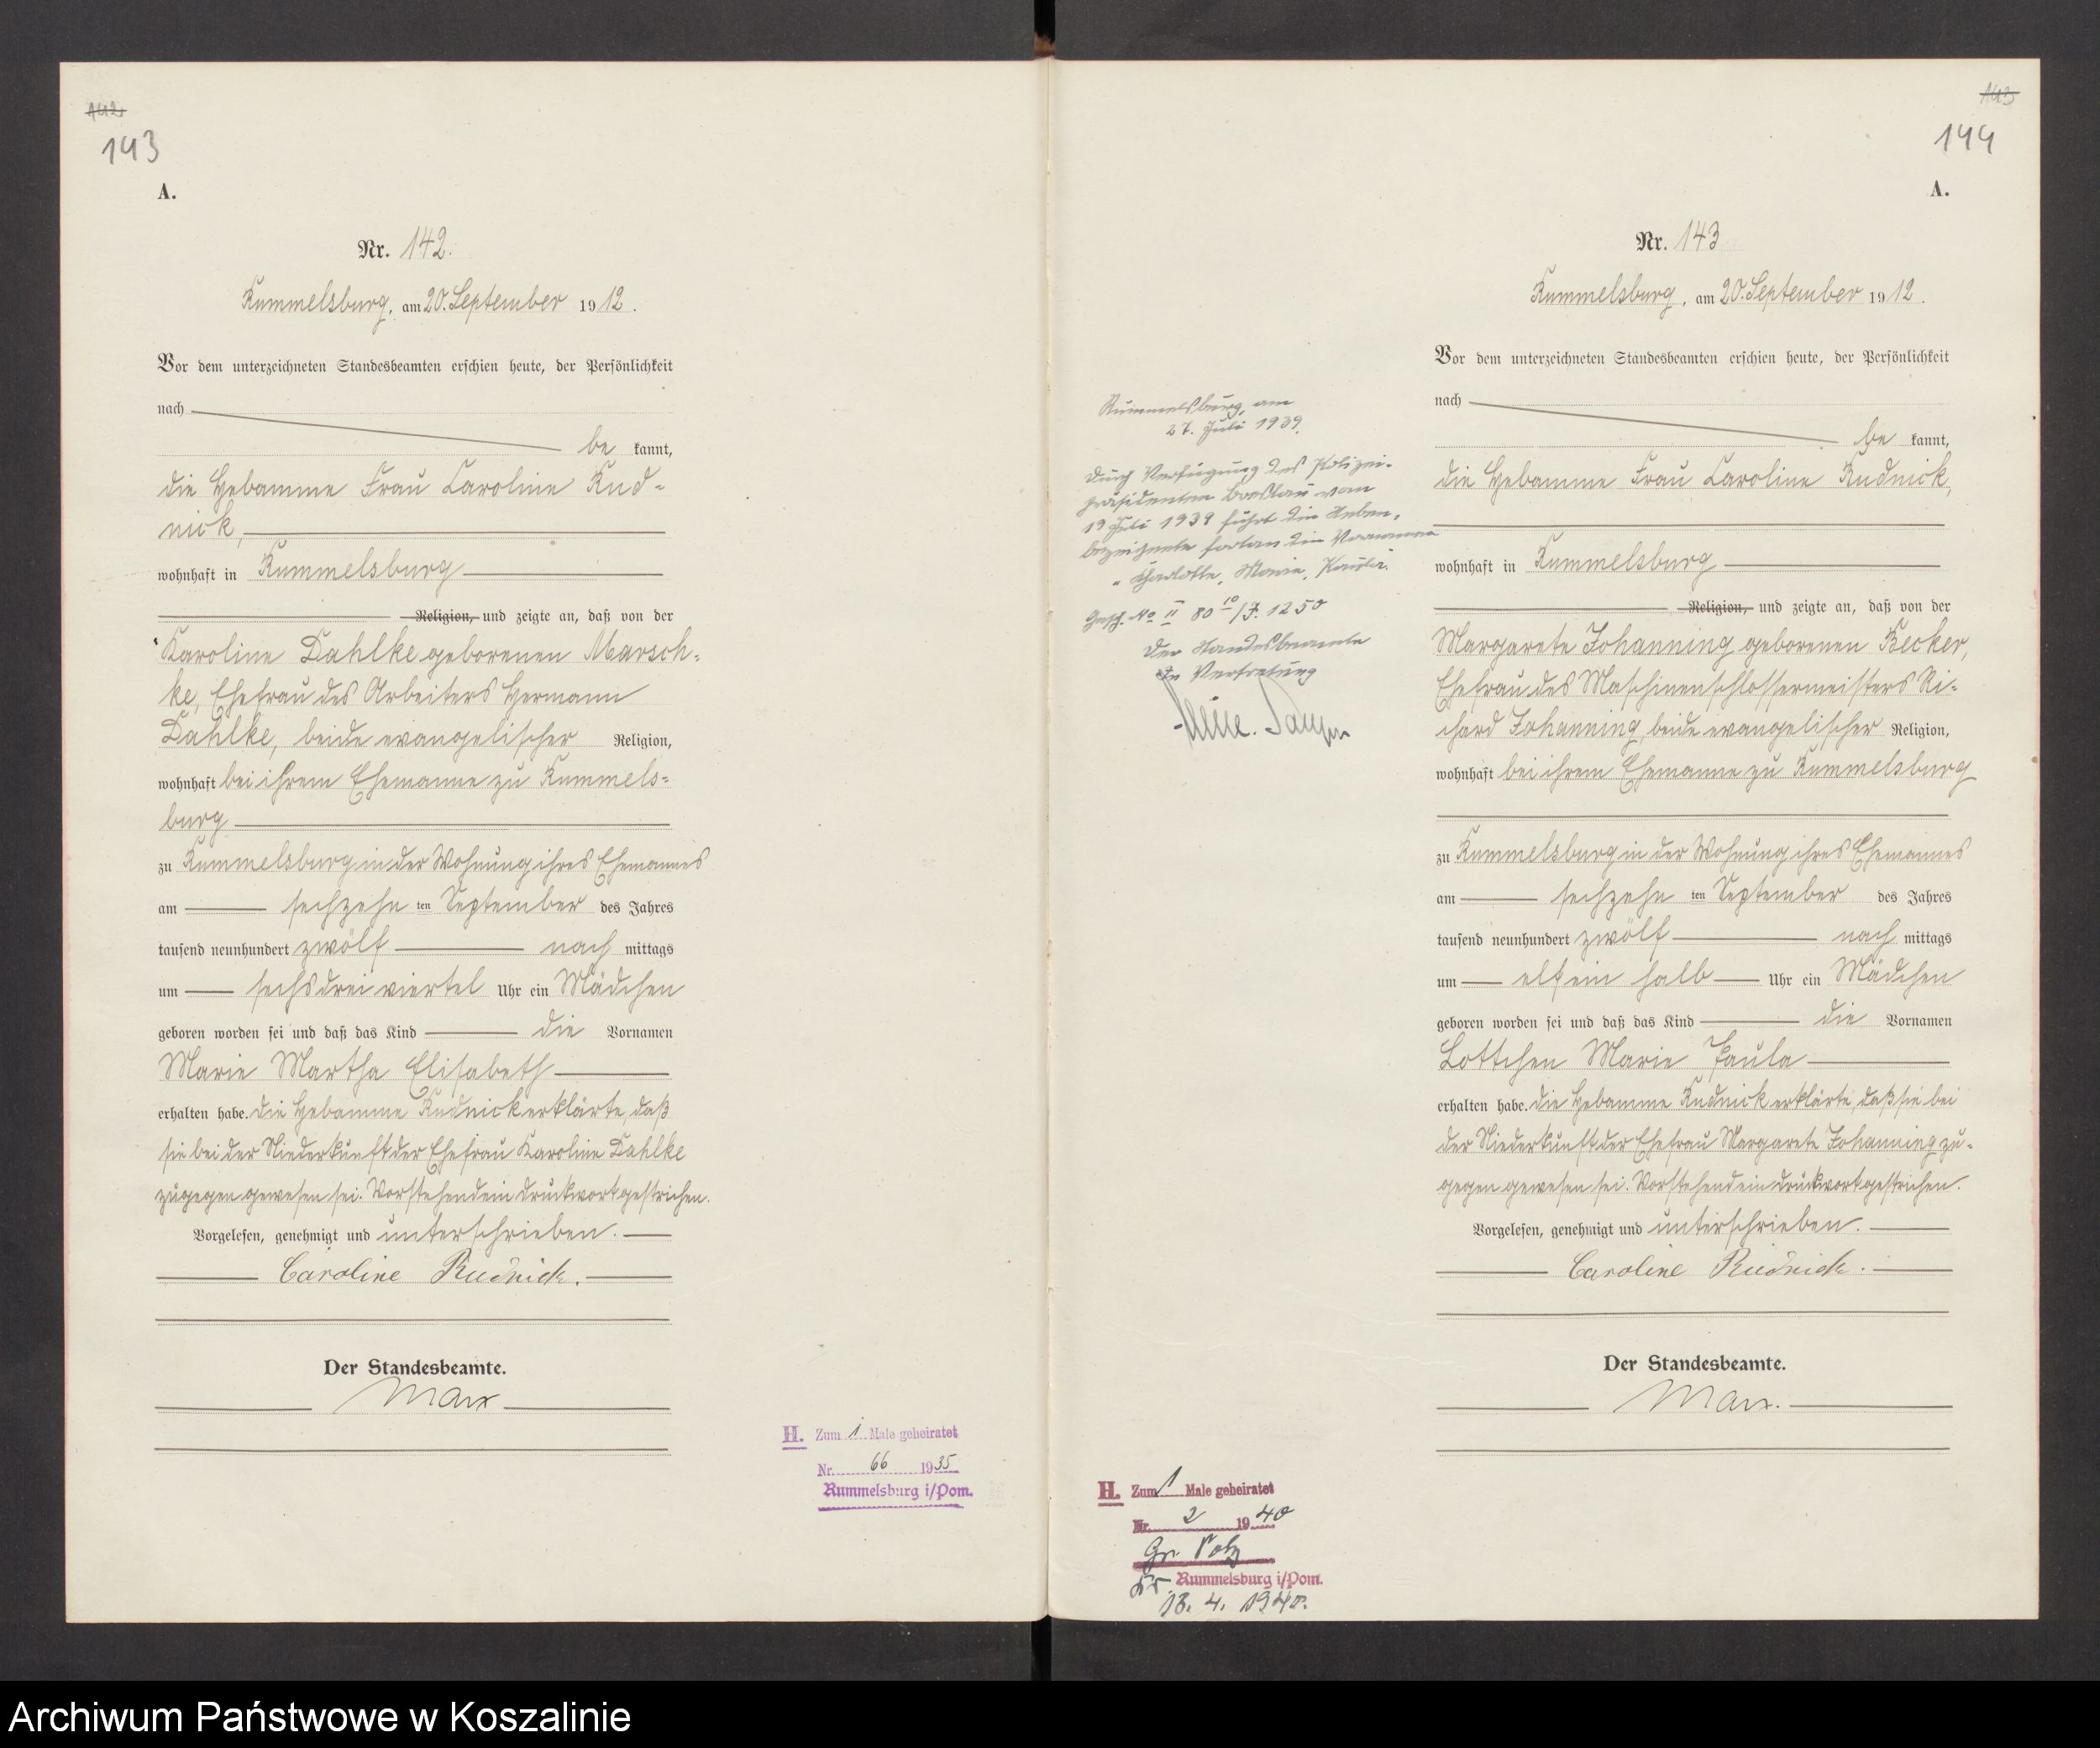 142
143
A.
Nr. 142.
Rummelsburg, am 20. September 1912.
Vor dem unterzeichneten Standesbeamten erschien heute, der Persönlichkeit
nach
be kannt,
die Hebamme Frau Caroline Rud-
nick,
wohnhaft in Rummelsburg
Religion, und zeigte an, daß von der
Karoline Dahlke geborenen Marsch-
ke, Ehefrau des Arbeiters Hermann
Dahlke, beide evangelischer Religion,
wohnhaft bei ihrem Ehemanne zu Rummels-
burg
zu Rummelsburg in der Wohnung ihres Ehemannes
am sechzehn ten September des Jahres
tausend neunhundert zwölf nach mittags
um sechs drei viertel Uhr ein Mädchen
geboren worden sei und daß das Kind die Vornamen
Marie Martha Elisabeth
erhalten habe. Die Hebamme Rudnick erklärte, daß
sie bei der Niederkunft der Ehefrau Karoline Dahlke
zugegen gewesen sei. Vorstehend ein Druckwort gestrichen.
Vorgelesen, genehmigt und unterschrieben.
Caroline Rudnick.
Der Standesbeamte.
Marx
H. Zum 1 Male geheiratet
Nr. 66 1935
Rummelsburg i/Pom.
143
144
A.
Nr. 143
Rummelsburg, am 20. September 1912.
Vor dem unterzeichneten Standesbeamten erschien heute, der Persönlichkeit
nach
be kannt,
die Hebamme Frau Caroline Rudnick,
wohnhaft in Rummelsburg
Religion, und zeigte an, daß von der
Margarete Johanning geborenen Becker,
Ehefrau des Maschinenschlossermeisters Ri-
chard Johanning, beide evangelischer Religion,
wohnhaft bei ihrem Ehemanne zu Rummelsburg
zu Rummelsburg in der Wohnung ihres Ehemannes
am sechzehn ten September des Jahres
tausend neunhundert zwölf nach mittags
um elf ein halb Uhr ein Mädchen
geboren worden sei und daß das Kind die Vornamen
Lottchen Marie Paula
erhalten habe. Die Hebamme Rudnick erklärte, daß sie bei
der Niederkunft der Ehefrau Margarete Johanning zu-
gegen gewesen sei. Vorstehend ein Druckwort gestrichen.
Vorgelesen, genehmigt und unterschrieben.
Caroline Rudnick.
Der Standesbeamte.
Marx.
Rummelsburg, am
27. Juli 1939.
Durch Verfügung des Polizei-
präsidenten Breslau vom
19 Juli 1939 führt die Neben-
bezeichnete fortan die Vornamen
"Charlotte, Marie, Paula".
Gesch. No II 80 10/J. 1250
Der Standesbeamte
In Vertretung
H. Zum 1 Male geheiratet
Nr. 2 1940
Rummelsburg i/Pom.
13. 4. 1940.
Archiwum Państwowe w Koszalinie